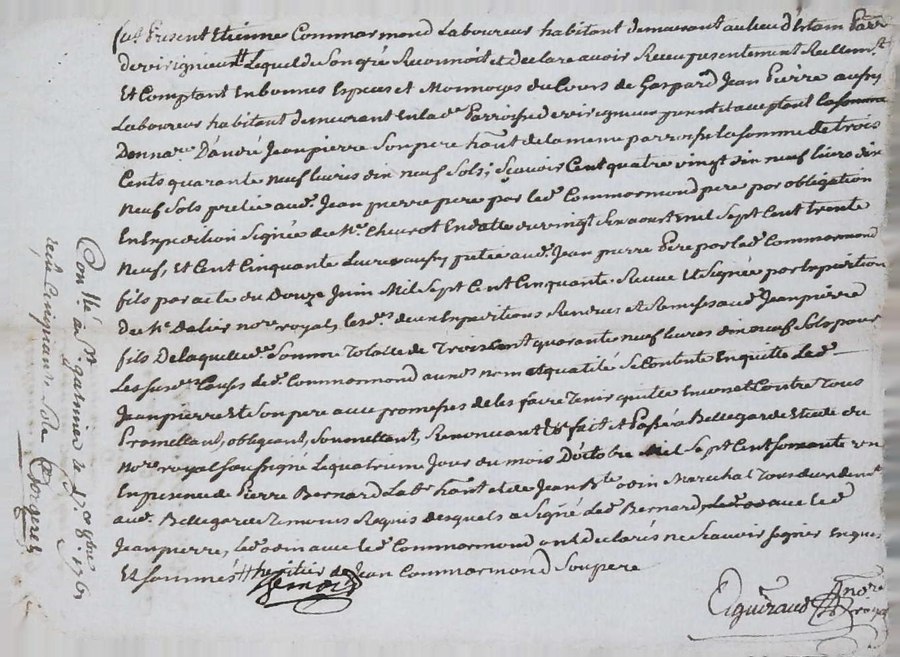 fut Present Etienne Commarmond Laboureur habitant demeurant au lieu d'
de virigneux # Lequel de Son gré Reconnoit et declare avoir Receu presentement Reellemt
Et Comptant En bonnes Especes et Monnoyes du Cours de Gaspard Jean Pierre
Laboureur habitant demeurant En lad. Parroisse de virigneux present et acceptant la somme
Jean pierre Son pere hant de la meme parroisse la somme de trois
Cents quarante neuf livres dix neuf Sols; Scavoir Cent quatre vingt dix neuf livres dix
Neuf Sols pretée aud. Jean pierre pere par led. Commarmond pere par obligation
En Expedition Signée de Me. Cheurot En datte du vingt six aoust mil Sept Cent trente
Neuf, Et Cent Cinquante Livres aussy pretée aud. Jean pierre Pere par led. Commarmond
fils par acte du Douze Juin Mil Sept Cent Cinquante. Receue Et Signée par Expedition
De Me. Dalier nore. royal, lesd. deux Expeditions Rendues et Remises aud. Jean pierre
fils De laquelle. Somme Totalle de Trois Cent quarante neuf livres dix neuf Sols pour
Les susd. Causes led. Commarmond aux nom et qualité Se Contente En quitte Led.
Jean pierre Et Son pere avec promesses de les faire Tenir quitte Envers et Contre Tous
Promettant, obligeant, Soumettant, Renoncant &c fait et Passé a Bellegarde Etude du
Nore. royal Soussigné Le quatrieme Jour du mois D'octobre Mil Sept Cent Soixante un
En presence de Pierre Bernard Labr. hant. et de Jean Bte. odin Marechal Tous deux demt.
aud. Bellegarde Temoins Requis desquels a Signé Led. Bernard avec led.
Jean pierre, led. odin avec led. Commarmond ont declarés ne Scavoir signer Enquis
Et Sommés # heritier de Jean Commarmond Son pere
Eyguiraud nore. royal
Conllé. a St. galmier le 8bre. 1761